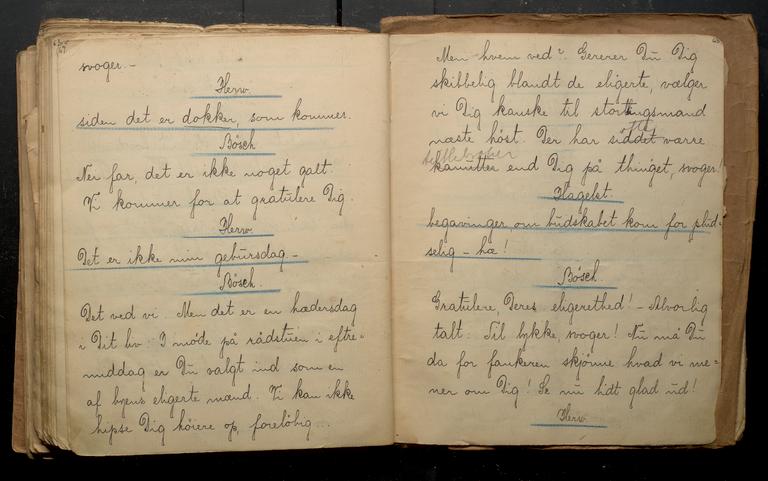 svoger. –
Herw.
siden det er dokker, som kommer.
Bösch
Nei far, det er ikke noget galt.
Vi kommer for at gratulere Dig.
Herw.
Det er ikke min gebursdag –
Bösch.
Det ved vi. Men det er en hædersdag
i Dit liv. I möde på rådstuen i efter-
middag er Du valgt ind som en
af byens eligerte mænd. Vi kan ikke
hipse Dig höiere op, forelöbig...
Men hvem ved? Gererer Du Dig
skikkelig blandt de eligerte, vælger
vi Dig kanske til stortingsmand
næste höst. Der har ofte siddet værre
end Dig på thinget, svoger!
begavinger om budskabet kom for plud-
selig – hæ!
Bösch.
Gratulere, Deres eligerethed! – Alvorlig
talt: Til lykke, svoger! Nu må Du
da for fankeren skjönne hvad vi me-
ner om Dig! Se nu lidt glad ud!
Herw.